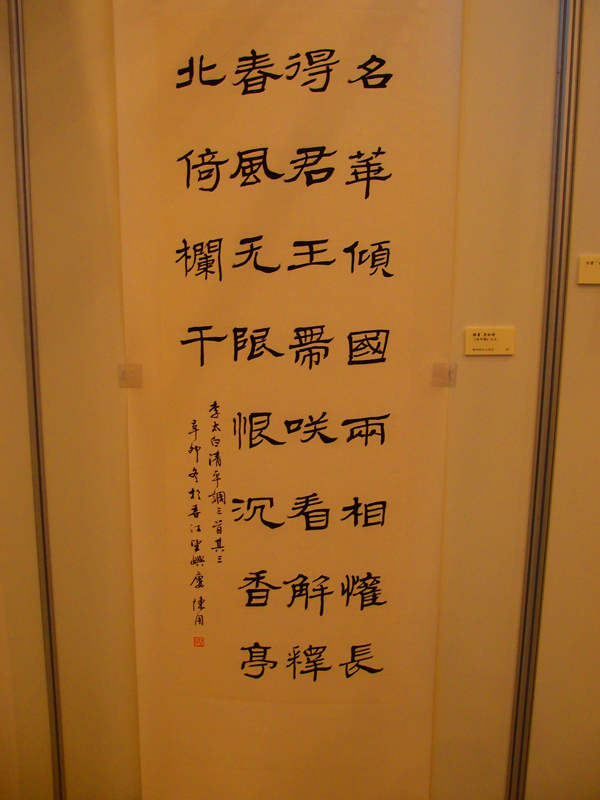 名華傾國兩相懽長
得君王帶咲看解釋
春風无限恨沉香亭
北倚欄干
李太白清平調三首其三
辛卯冬於香江望嶼廬 陳用